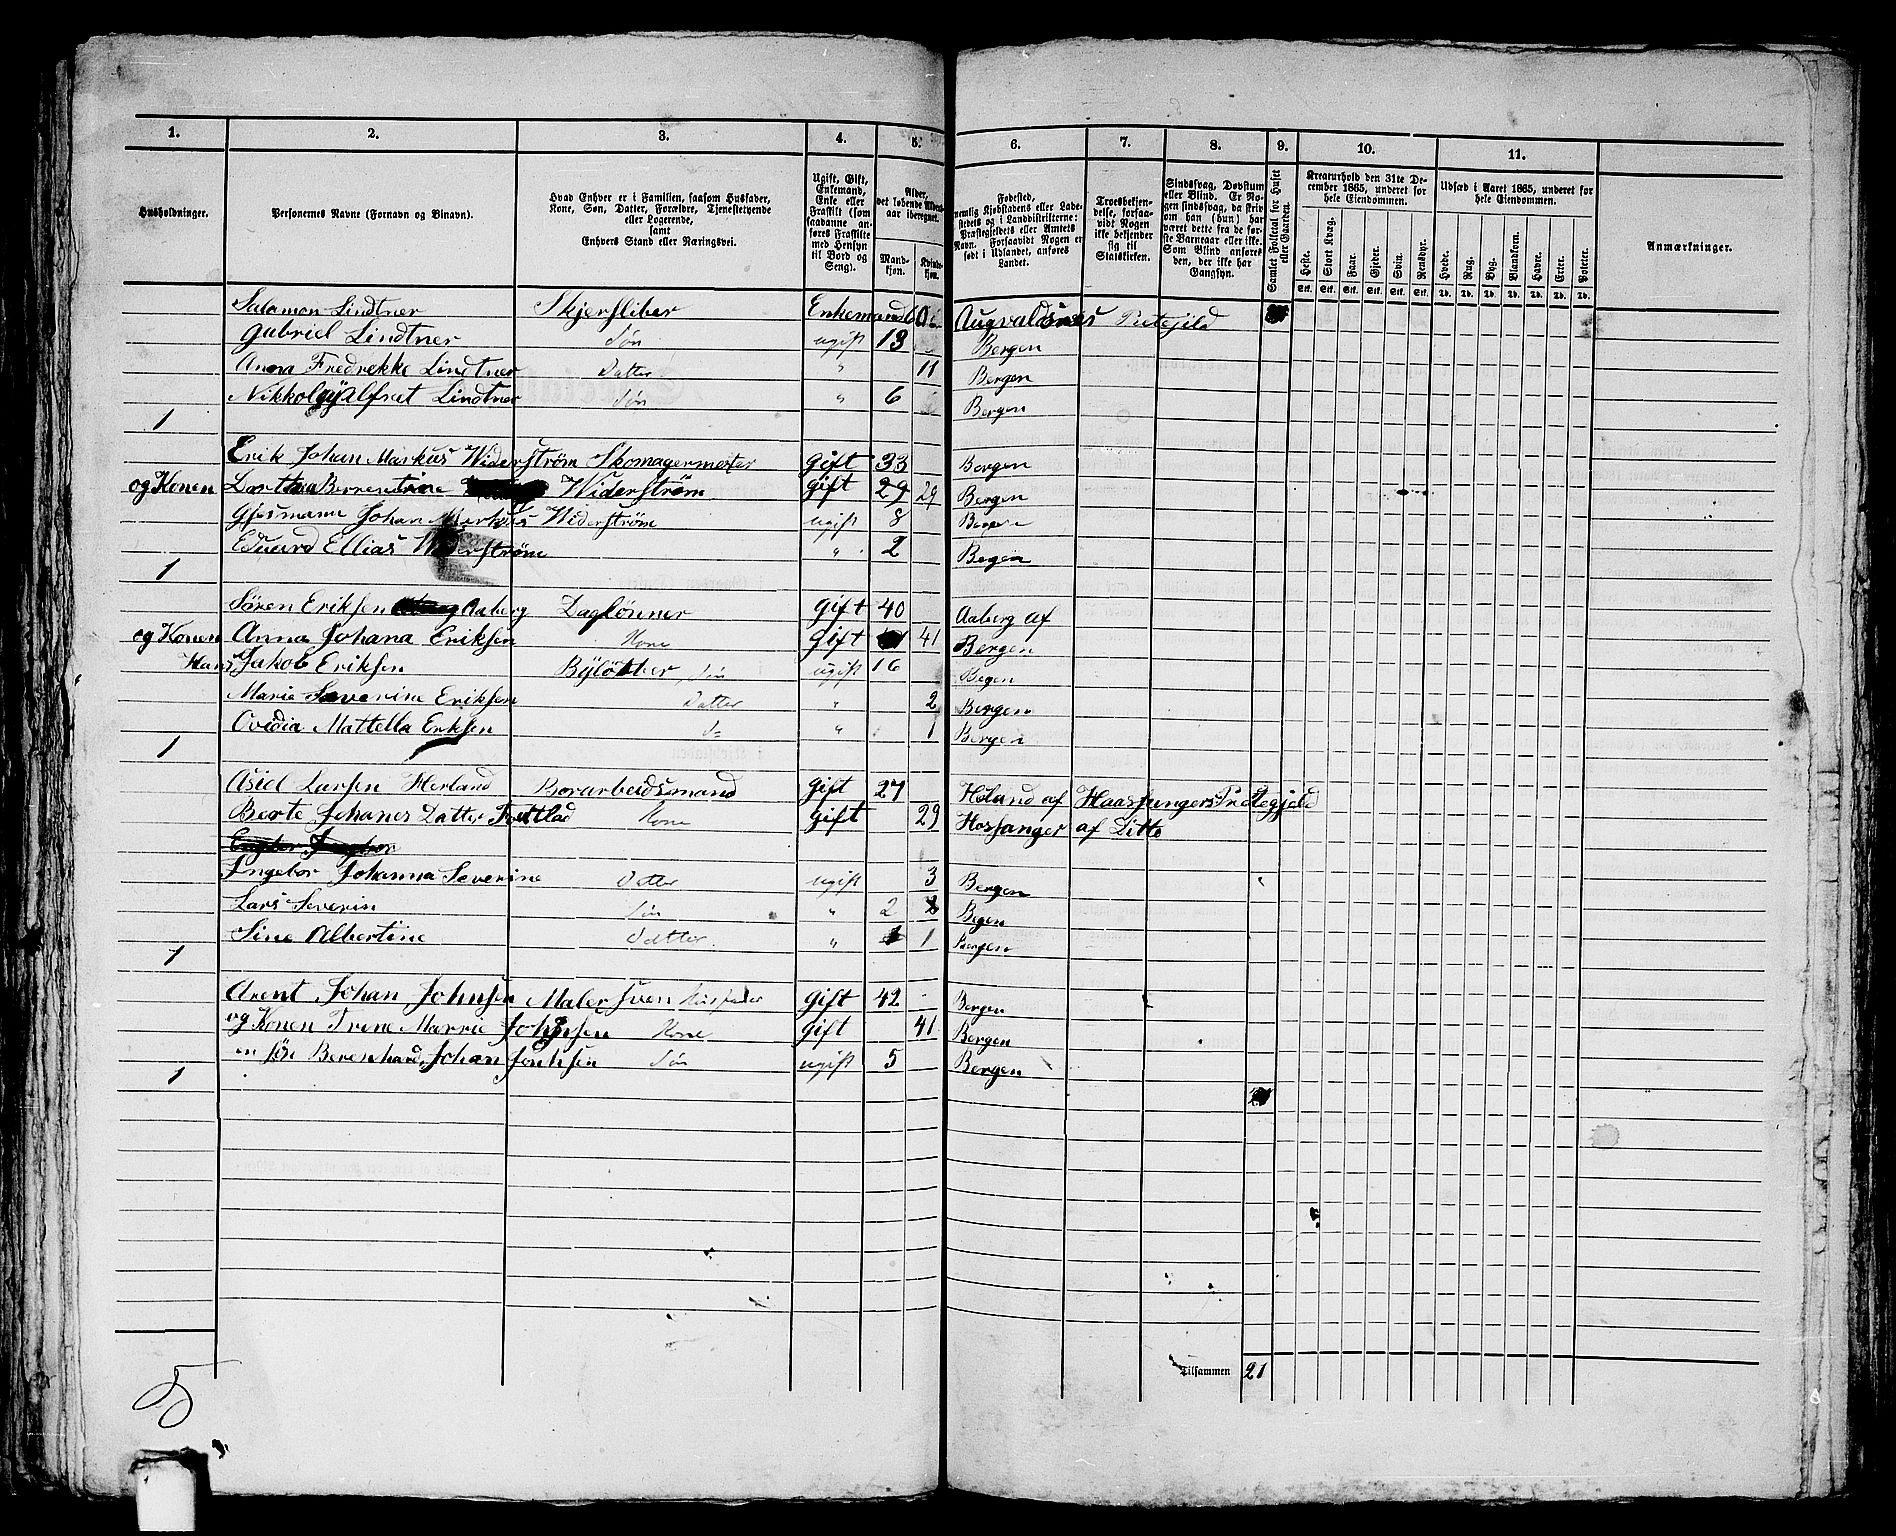 1. 2. 3. 4. 5. 6. 7. 8. 9. 10. 11.
Husholdninger.
Personernes Navne (Fornavn og Binavn).
Hvad Enhver er i Familien, saasom Husfader, Kone, Søn, Datter, Forældre, Tjenestetyende eller Logerende, samt Enhvers Stand eller Næringsvei.
Ugift, Gift, Enkemand, Enke eller Fraskilt (som saadanne anføres Fraskilte med Hensyn til Bord og Seng).
Alder, det løbende Aldersaar iberegnet.
Mandkjøn. Kvindekjøn.
Fødested, nemlig Kjøbstadens eller Ladestedets og i Landdistrikterne: Præstegjeldets eller Amtets Navn. Forsaavidt Nogen er født i Udlandet, anføres Landet.
Troesbekjendelse, forsaavidt Nogen ikke bekjender sig til Statskirken.
Sindssvag, Døvstum eller Blind. Er Nogen sindssvag, da skrives om han (hun) har været dette fra de første Barneaar eller ikke. Som Blind anføres den, der ikke har Gangsyn.
Samlet Folketal for Huset eller Gaarden.
Kreaturhold den 31te December 1865, underet for hele Eiendommen.
Heste. Stort Kvæg. Faar. Gjeder. Svin. Rensdyr.
Stk. Stk. Stk. Stk. Stk. Stk.
Udsæd i Aaret 1865, underet for hele Eiendommen.
Hvede. Rug. Byg. Blandkorn. Havre. Erter. Poteter.
Td. Td. Td. Td. Td. Td. Td.
Anmærkninger.
Salamon Lindtner Skjersliber Enkemand 60 Augvaldsnes Pretejild
Gabriel Lindtner Søn ugift 13 Bergen
Anna Fredrekke Lindtner Datter " 11 Bergen
Nikkolay Alfret Lindtner Søn " 6 Bergen
1
Erik Johan Markus Widerstrøm Skomagermester Gift 33 Bergen
og Konen Dorthea Berrentine Widerstrøm Gift 29 29 Bergen
Johan Markus Widerstrøm ugift 8 Bergen
Eduard Ellias Widerstrøm " 2 Begen
1
Søren Eriksen Aaberg Daglønner Gift 40 Aaberg af
og Konen Anna Johana Eriksen Kone Gift 41 Bergen
Hans Jakob Eriksen Byløbber Søn ugift 16 Begen
Marie Severine Eriksen Datter " 2 Bergen
Ovidia Mattella Eriksen D= " 1 Bergen
1
Asiel Larsen Herland Borarbeidsmand Gift 27 Høland af Haasfangers Pretegjeld
Berte Johanes Datter Kone Gift 29 Hosfanger af Ditto
Ingebor Johanna Severine Datter ugift 3 Bergen "
Lars Severin Søn " 2 Begen
Sine Albertine Datter " 1 Bergen
1
Arent Johan Johnsen Maler Sven Husfader Gift 42 Bergen
og Konen Trine Marrie Johnsen Kone Gift 41 Bergen
en søn Berenhard Johan Jonhsen Søn ugift 5 Bergen
1
Tilsammen 21
5